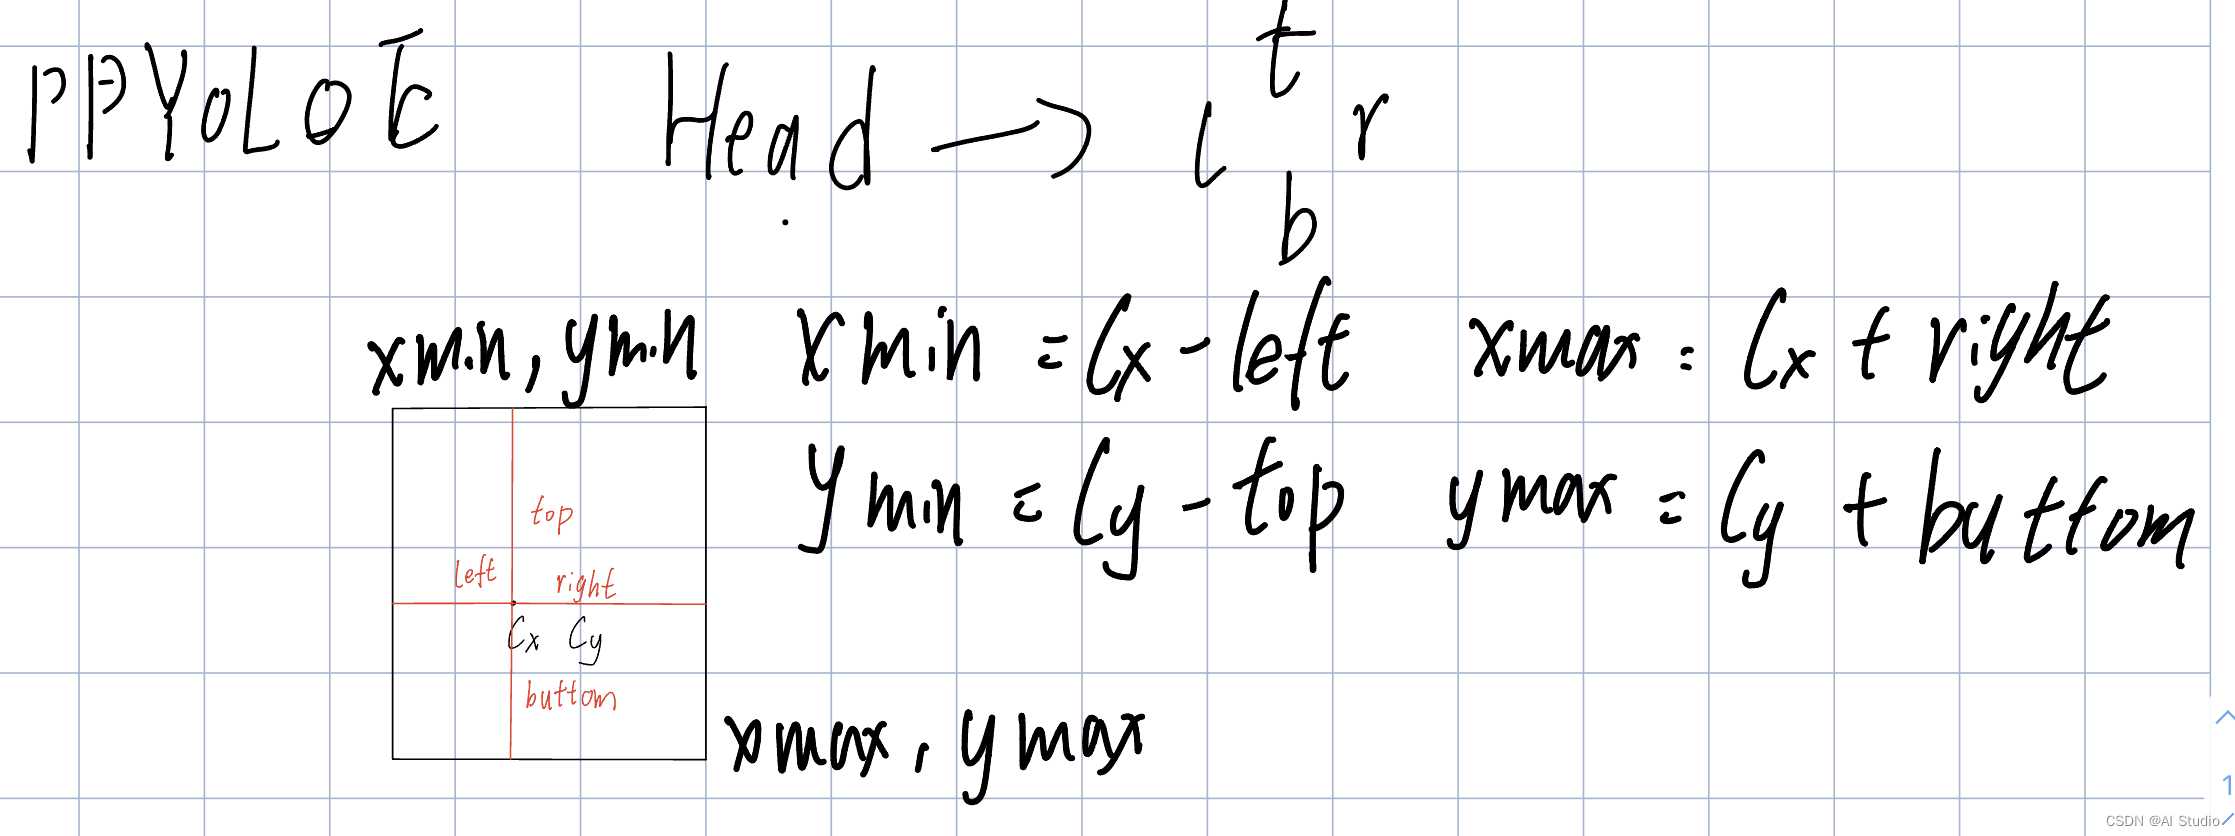 PPYOLOE Head → l t r b
xmin, ymin xmin = Cx - left xmax = Cx + right
ymin = Cy - top ymax = Cy + buttom
top
left right
Cx Cy
buttom
xmax, ymax
1
CSDN @AI Studio